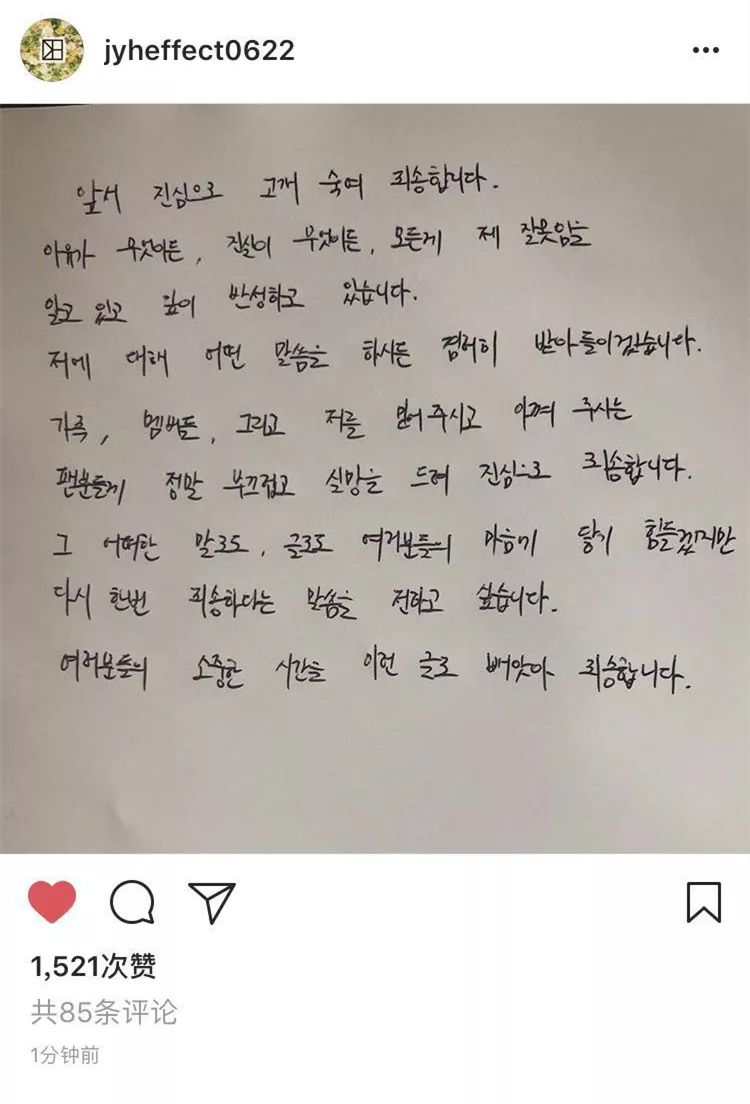 jyheffect0622
앞서 진심으로 고개 숙여 죄송합니다.
이유가 무엇이든, 진실이 무엇이든, 모든게 제 잘못임을
알고 있고 깊이 반성하고 있습니다.
저에 대해 어떤 말씀을 하시든 겸허히 받아들이겠습니다.
가족, 멤버들, 그리고 저를 믿어주시고 아껴 주시는
팬분들께 정말 부끄럽고 실망을 드려 진심으로 죄송합니다.
그 어떠한 말로도, 글로도 여러분들의 마음에 닿기 힘들겠지만
다시 한번 죄송하다는 말씀을 전하고 싶습니다.
여러분들의 소중한 시간을 이런 글로 빼앗아 죄송합니다.
1,521次赞
共85条评论
1分钟前